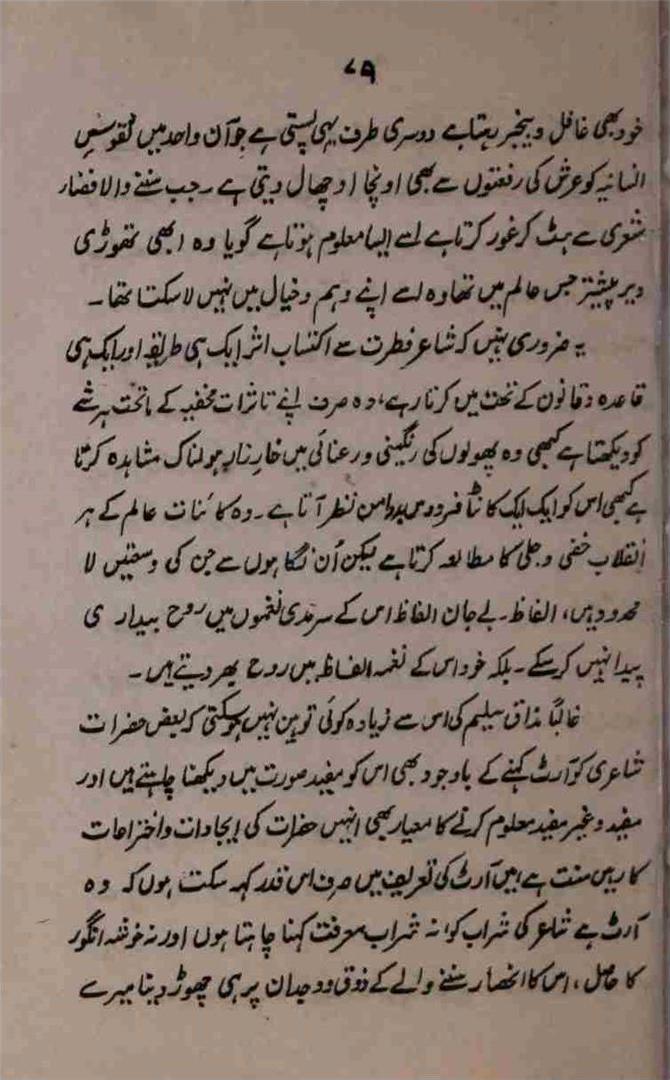 ۷۹
خود بھی غافل و بیخبر رہتا ہے دوسری طرف یہی پستی ہے جو آن واحد میں نفوس
انسانیہ کو عرش کی رفعتوں سے بھی اونچا اوچھال دیتی ہے ۔ جب سننے والا فضار
شعری سے ہٹ کر غور کرتا ہے اسے ایسا معلوم ہوتا ہے گویا وہ ابھی تھوڑی
دیر پیشتر جس عالم میں تھا وہ اسے اپنے وہم و خیال میں نہیں لا سکتا تھا ۔
یہ ضروری نہیں کہ شاعر فطرت سے اکتساب اثر ایک ہی طریقہ اور ایک ہی
قاعدہ و قانون کے تحت میں کرتا رہے، وہ صرف اپنے تاثرات مخفیہ کے ماتحت ہر شے
کو دیکھتا ہے کبھی وہ پھولوں کی رنگینی و رعنائی میں خارزار ہولناک مشاہدہ کرتا
ہے کبھی اس کو ایک ایک کانٹا فردوس بدامن نظر آتا ہے ۔ وہ کائنات عالم کے ہر
انقلاب خفی و جلی کا مطالعہ کرتا ہے لیکن اُن نگاہوں سے جن کی وسعتیں لا
محدود ہیں، الفاظ ۔ بے جان الفاظ اس کے سرمدی نغموں میں روح بیداری
پیدا نہیں کر سکے ۔ بلکہ خود اس کے نغمہ الفاظ میں روح بھر دیتے ہیں ۔
غالباً مذاق سلیم کی اس سے زیادہ کوئی توہین نہیں ہو سکتی کہ بعض حضرات
شاعری کو آرٹ کہنے کے باوجود بھی اس کو مفید صورت میں دیکھنا چاہتے ہیں اور
مفید و غیر مفید معلوم کرنے کا معیار بھی انہیں حضرات کی ایجادات و اختراعات
کا رہین منت ہے میں آرٹ کی تعریف میں صرف اس قدر کہہ سکتا ہوں کہ وہ
آرٹ ہے شاعر کی شراب کو نہ شراب معرفت کہنا چاہتا ہوں اور نہ خوشہ انگور
کا حاصل، اس کا انحصار سننے والے کے ذوق و وجدان پر ہی چھوڑ دینا میرے